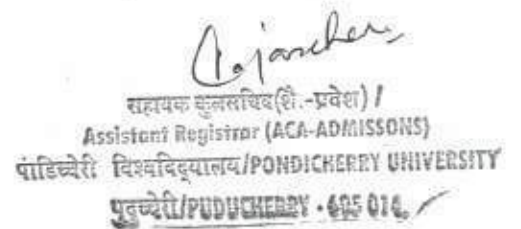 सहायक कुलसचिव(शै.-प्रवेश) /
Assistant Registrar (ACA-ADMISSONS)
पांडिच्चेरी विश्वविद्यालय/PONDICHERRY UNIVERSITY
पुदुच्चेरी/PUDUCHERRY - 605 014.